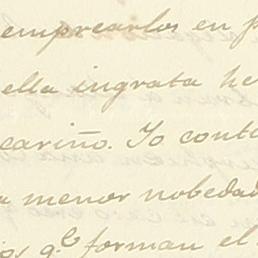 emprearlos en p
ella ingrata he
cariño. Yo conto
a menor nobedad
os q.e forman el